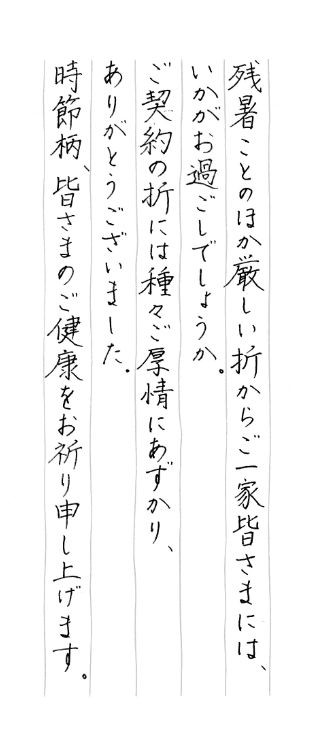 残暑ことのほか厳しい折からご一家皆さまには、
いかがお過ごしでしょうか。
ご契約の折には種々ご厚情にあずかり、
ありがとうございました。
時節柄、皆さまのご健康をお祈り申し上げます。